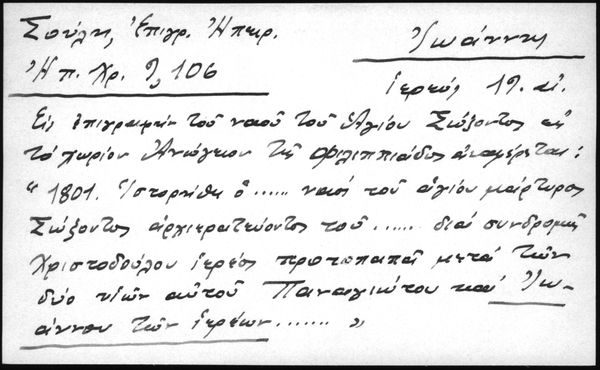 Σούλη, Ἐπιγρ. Ἠπειρ.
Ἠπ. Χρ. 9, 106
Ἰωάννης
ἱερεύς 19. αἰ.
Εἰς ἐπιγραφήν τοῦ ναοῦ τοῦ Ἁγίου Σώζοντος εἰς
τό χωρίον Ἀνώγειον τῆς Φιλιππιάδος ἀναφέρεται:
"1801. Ἱστορήθη ὁ ...... ναός τοῦ ἁγίου μάρτυρος
Σώζοντος ἀρχιερατεύοντος τοῦ ...... διά συνδρομῆς
Χριστοδούλου ἱερέος πρωτοπαπᾶ μετά τῶν
δύο υἱῶν αὐτοῦ Παναγιώτου καί Ἰω-
άννου τῶν ἱερέων ....... "